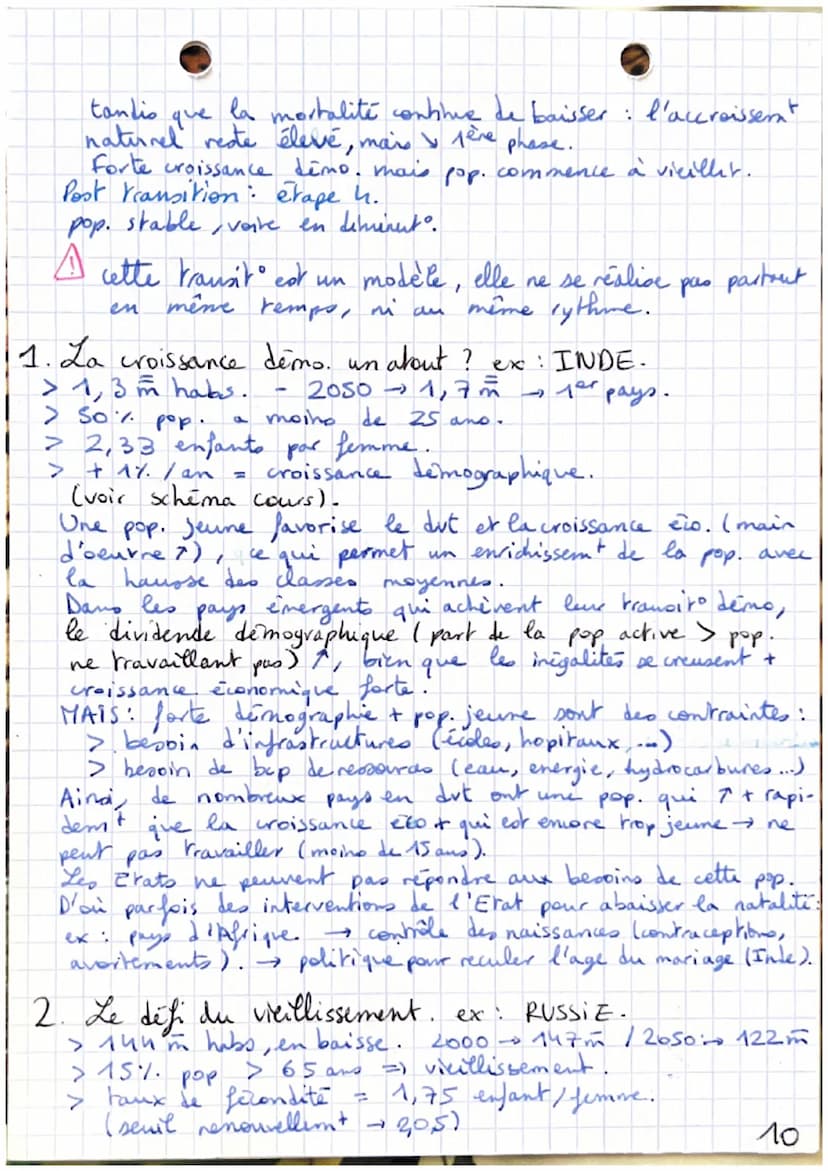 tandis que la mortalité continue de baisser : l'accroissemt
naturel reste élevé, mais ↘ 1ère phase.
Forte croissance démo. mais pop. commence à vieillir.
Post transition : étape 4.
pop. stable, voire en diminut°.
⚠ cette transit° est un modèle, elle ne se réalise pas partout
en même temps, ni au même rythme.
1. La croissance démo. un atout ? ex : INDE.
> 1,3 m̿ habs. - 2050 → 1,7 m̿ → 1er pays.
> 50 % pop. a moins de 25 ans.
> 2,33 enfants par femme.
> + 1% / an = croissance démographique.
(voir schéma cours).
Une pop. jeune favorise le dvt et la croissance éco. (main
d'oeuvre ↗), ce qui permet un enrichissemt de la pop. avec
la hausse des classes moyennes.
Dans les pays émergents qui achèvent leur transit° démo,
le dividende démographique (part de la pop active > pop.
ne travaillant pas) ↗, bien que les inégalités se creusent +
croissance économique forte.
MAIS : forte démographie + pop. jeune sont des contraintes :
> besoin d'infrastructures (écoles, hopitaux, ...)
> besoin de bcp de ressources (eau, énergie, hydrocarbures ...)
Ainsi, de nombreux pays en dvt ont une pop. qui ↗ + rapi-
demt que la croissance éco + qui est encore trop jeune → ne
peut pas travailler (moins de 15 ans).
Les Etats ne peuvent pas répondre aux besoins de cette pop.
D'où parfois des interventions de l'Etat pour abaisser la natalité :
ex : pays d'Afrique. → contrôle des naissances (contraceptions,
avortements). → politique pour reculer l'age du mariage (Inde).
2. Le défi du vieillissement. ex : RUSSIE.
> 144 m̄ habs, en baisse. 2000 → 147 m̄ / 2050 → 122 m̄
> 15% pop > 65 ans => vieillissement.
> taux de fécondité = 1,75 enfant / femme.
(seuil renouvellemt → 2,05)
10